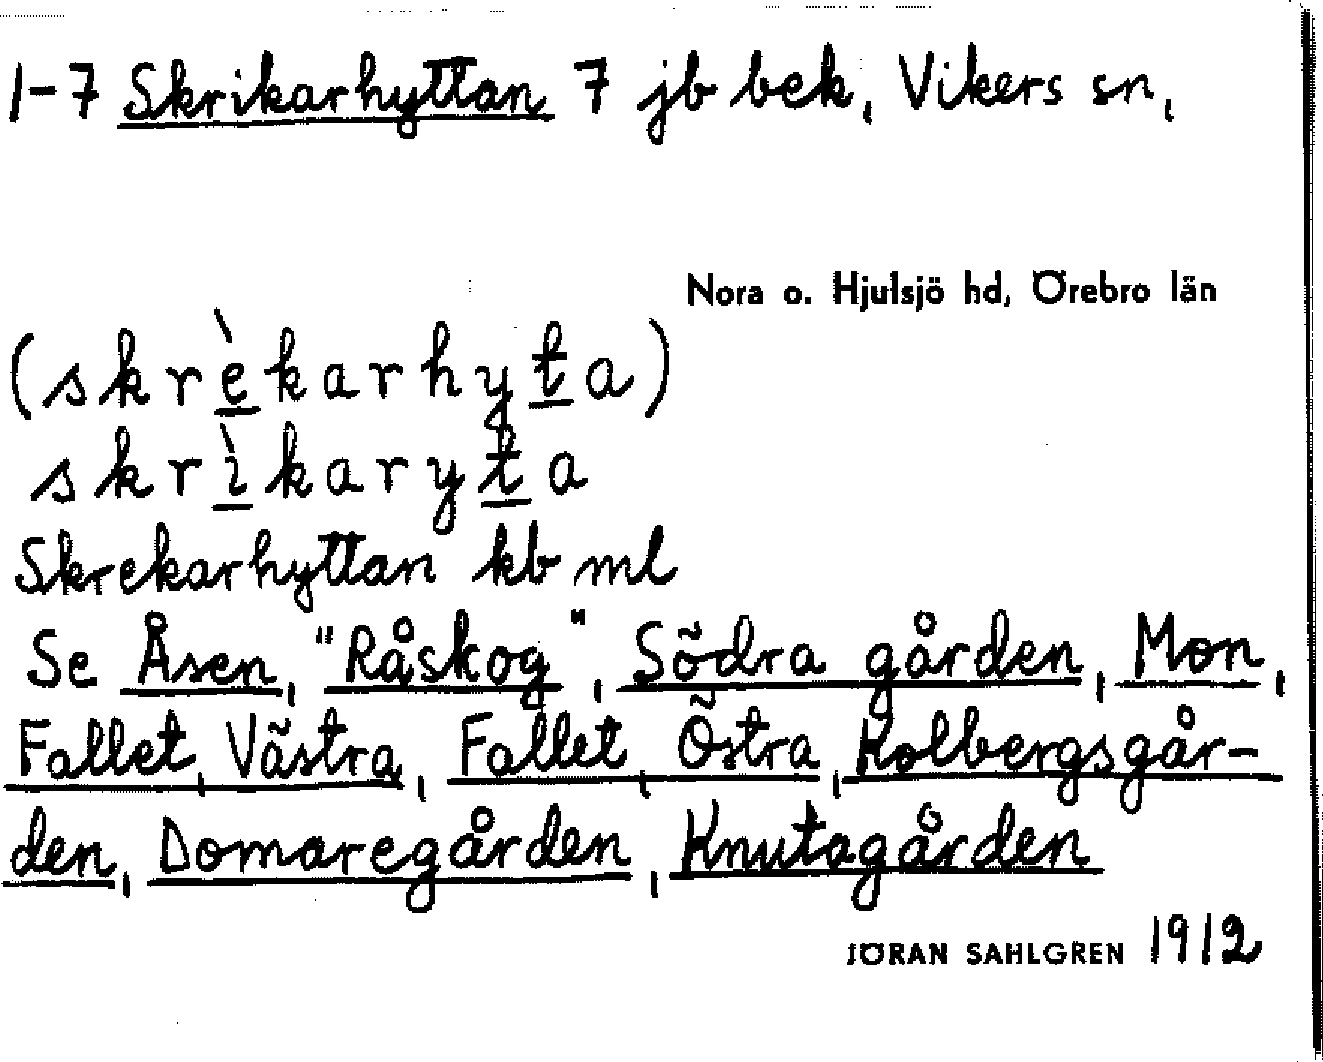 1-7 Skrikarhyttan 7 jb bek, Vikers sn,
Nora o. Hjulsjö hd, Örebro län
(skrèkarhyta)
skrìkaryta
Skrekarhyttan kb ml
Se Åsen, "Råskog", Södra gården, Mon,
Fallet, Västra, Fallet, Östra, Kolbergsgår-
den, Domaregården, Knutagården
JÖRAN SAHLGREN 1912